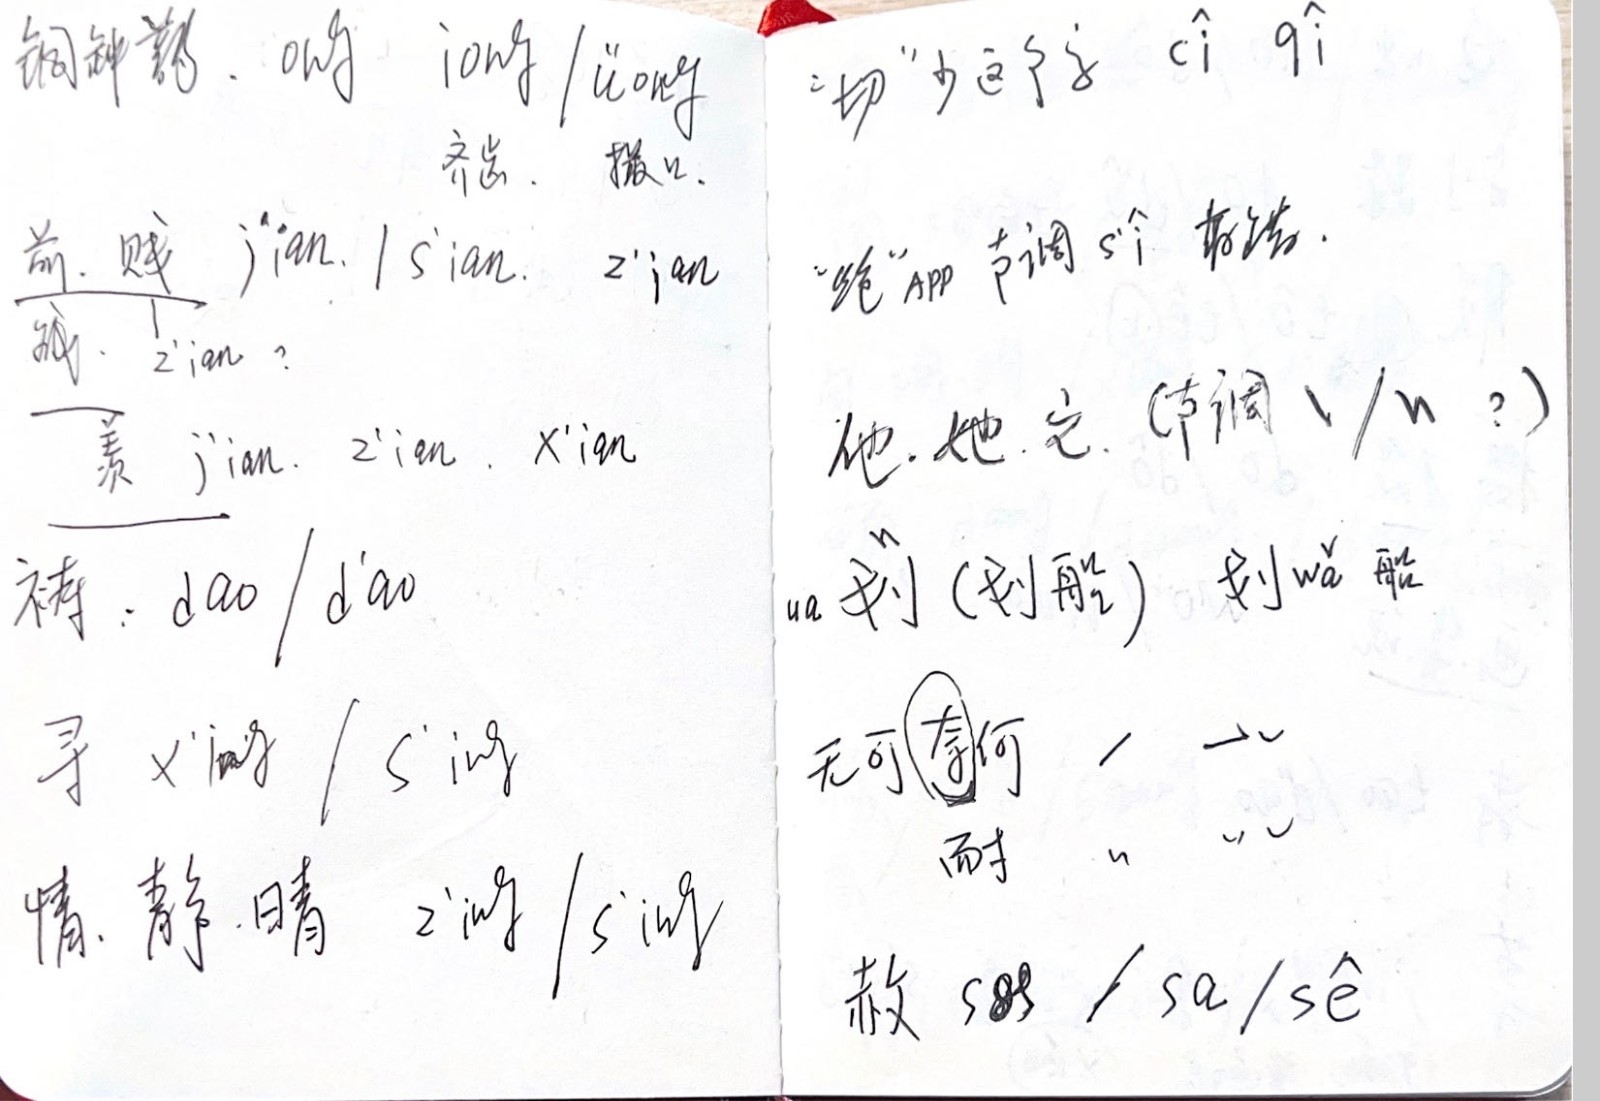 铜钟鹅. ong iong/üong
齐齿. 撮口.
前. 贱 j'ian. / s'ian. z'ian
贼. z'ian?
羡 j'ian. z'ian. x'ian
祷: dao / d'ao
寻 x'ing / s'ing
情. 静. 晴 z'ing / s'ing
"切"少这个音 cî qî
"绝" APP 声调 s'î 弄错.
他. 她. 它. (声调 \ / n ?)
ua 划 (划船) 划 wǎ 船
无可奈何
耐
赦 / sa / sê